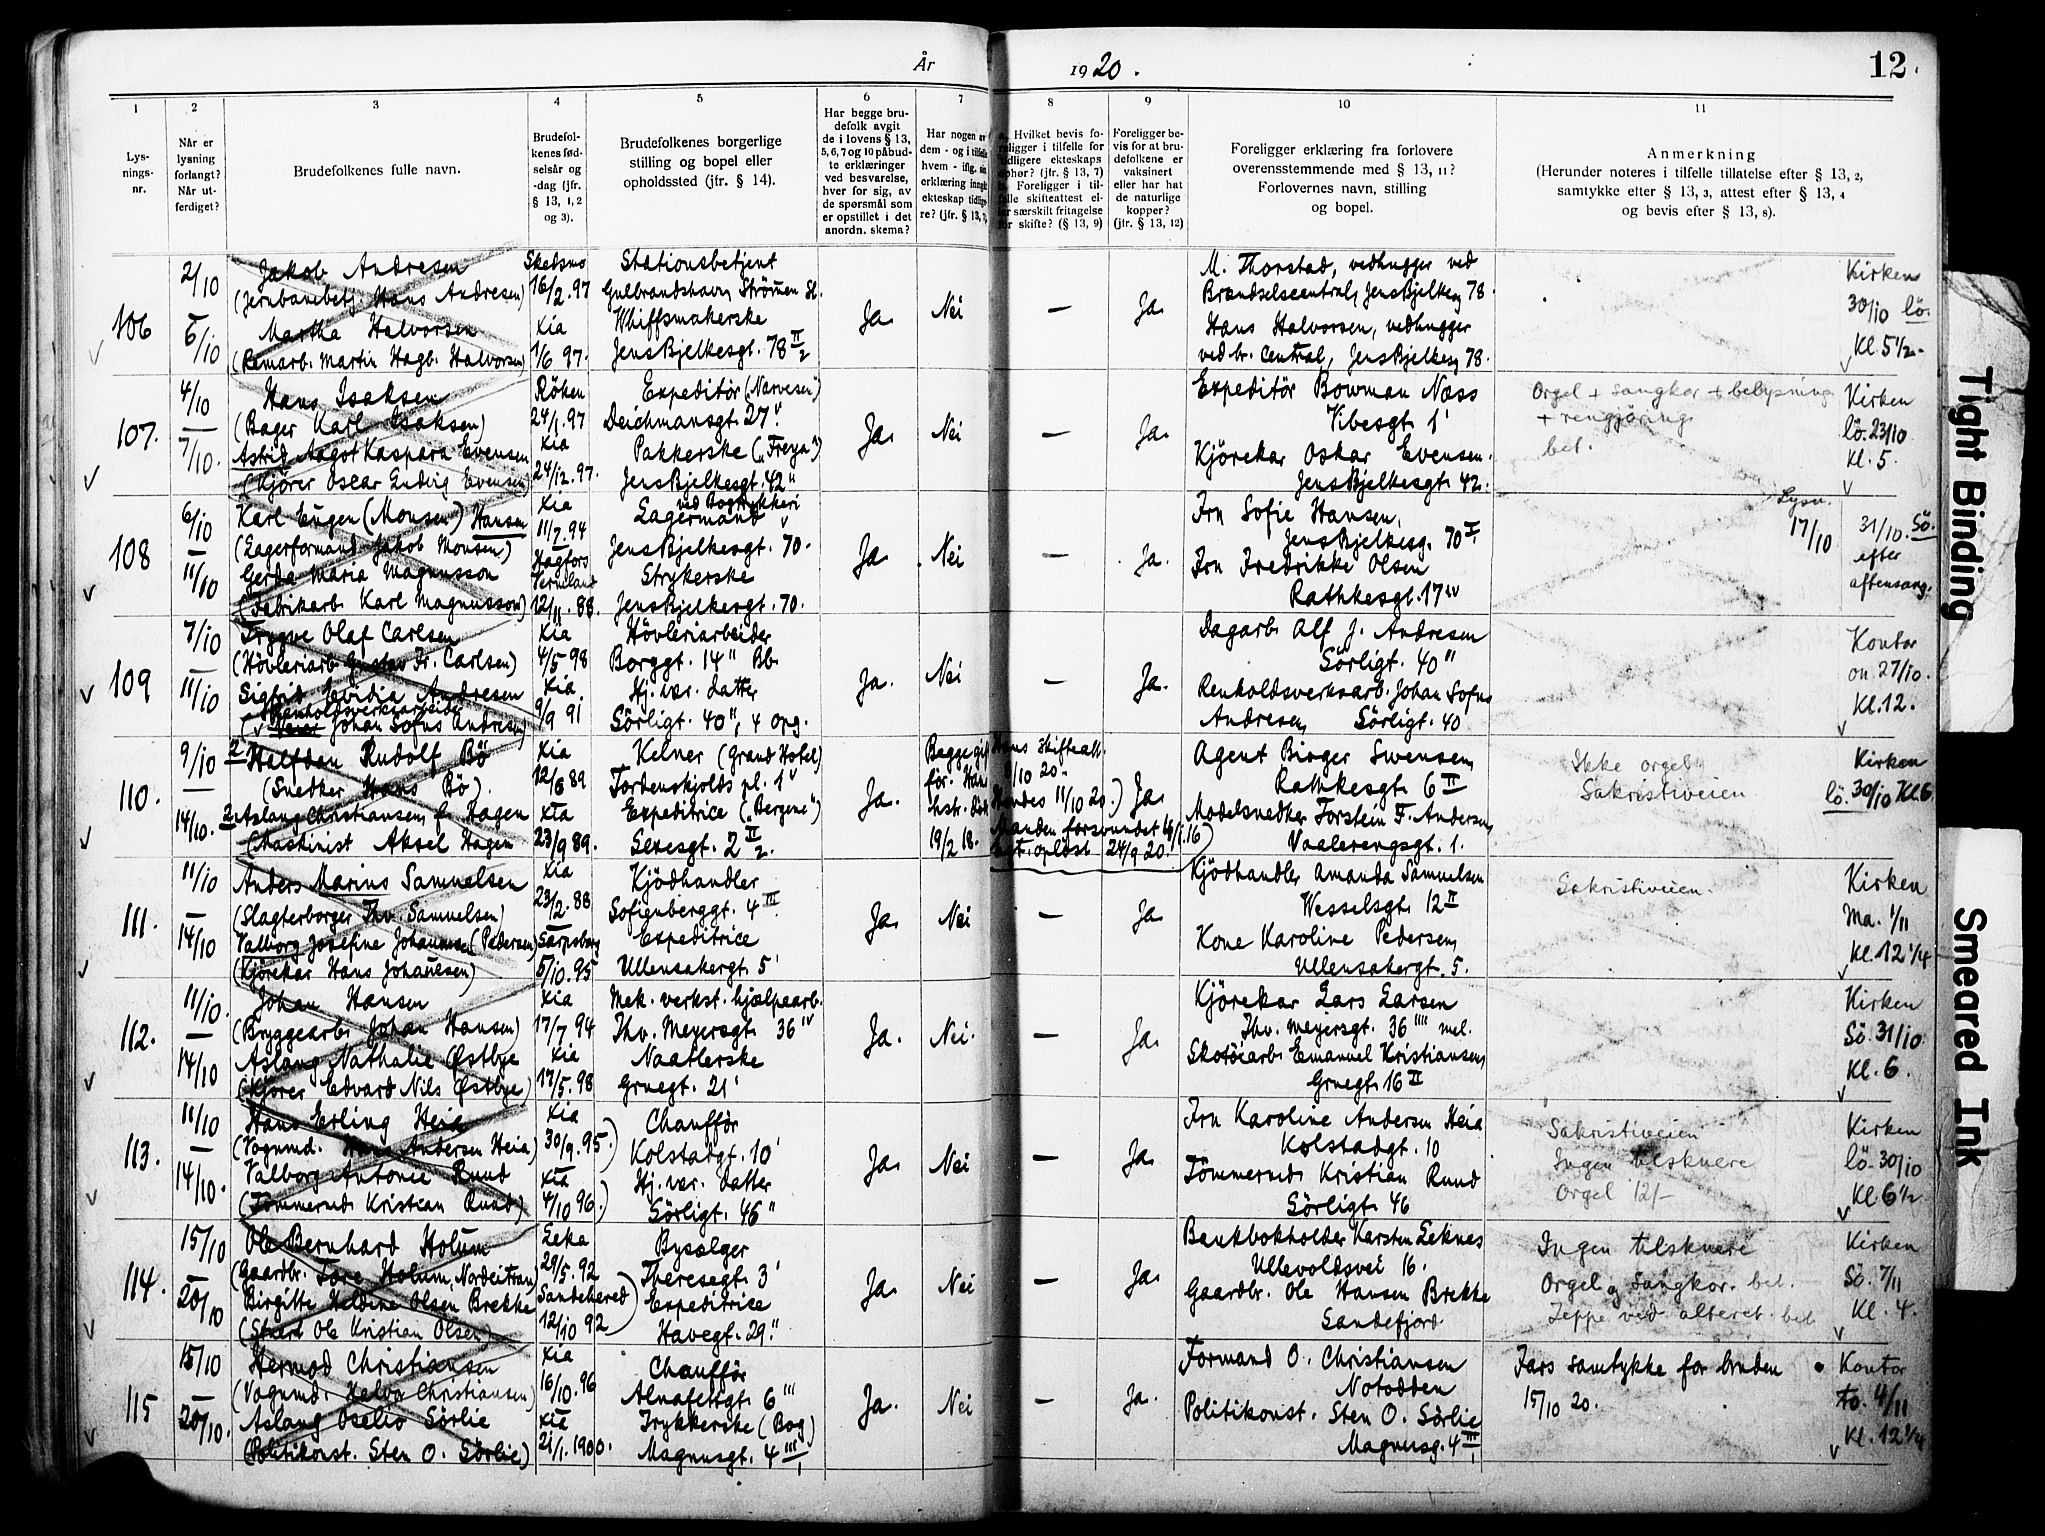 År 1920.
12.
1
2
3
4
5
6
7
8
9
10
11
Lys-
nings-
nr.
Når er
lysning
forlangt?
Når ut-
ferdiget?
Brudefolkenes fulle navn.
Brudefol-
kenes fød-
selsår og
-dag (jfr.
§ 13, 1, 2
og 3).
Brudefolkenes borgerlige
stilling og bopel eller
opholdssted (jfr. § 14).
Har begge bru-
defolk avgit
de i lovens § 13,
5, 6, 7 og 10 påbud-
te erklæringer
ved besvarelse,
hver for sig, av
de spørsmål som
er opstillet i det
anordn. skema?
Har nogen av
dem - og i tilfelle
hvem - iflg. sin
erklæring inngått
ekteskap tidlige-
re? (jfr. § 13, 7)
a. Hvilket bevis fo-
religger i tilfelle for
tidligere ekteskaps
ophør? (jfr. § 13, 7)
b. Foreligger i til-
felle skifteattest el-
ler særskilt fritagelse
for skifte? (§ 13, 9)
Foreligger be-
vis for at bru-
defolkene er
vaksinert
eller har hat
de naturlige
kopper?
(jfr. § 13, 12)
Foreligger erklæring fra forlovere
overensstemmende med § 13, 11?
Forlovernes navn, stilling
og bopel.
Anmerkning
(Herunder noteres i tilfelle tillatelse efter § 13, 2,
samtykke efter § 13, 3, attest efter § 13, 4
og bevis efter § 13, 8).
106
2/10
5/10
Jakob Andresen
(Jernbanebetj. Hans Andresen)
Martha Halvorsen
(Remarb. Martin Hagb. Halvorsen)
Skedsmo
16/2.97
Kia
1/6 97.
Stationsbetjent
Gulbrandshavn Strömmen St.
Whiffsmakerske
Jens Bjelkesgt. 78 II/2
Ja.
Nei
—
Ja.
M. Thorstad, vedhugger ved
Brændselscentral, Jens Bjelkesg 78.
Hans Halvorsen, vedhugger
ved br. central, Jens Bjelkesg 78.
Kirken
30/10 lö.
Kl. 5 1/2.
107.
4/10
7/10.
Hans Isaksen
(Bager Karl Isaksen)
Astrid Aagot Kaspara Evensen
(Kjörer Oscar Ludvig Evensen)
Röken
24/1.97
Kia
24/12.97.
Expeditör (Narvesen")
Deichmansgt. 27 v.
Pakkerske („Freya")
Jens Bjelkesgt. 42"
Ja.
Nei
—
Ja.
Expeditör Bowman Næss
Vibesgt. 1'
Kjörekar Oskar Evensen.
Jens Bjelkesgt. 42.
Orgel + sangkor + belysning
+ rengjöring
bet.
Kirken
lö. 23/10
kl. 5.
108
6/10
11/10
Karl Eugen (Monsen) Hansen
(Lagerformand Jakob Monsen)
Gerda Maria Magnusson
(Fabrikarb. Karl Magnusson)
Kia
11/7.94
Hagfors
Vermland
12/11.88.
ved Bogtrykkeri
Lagermand
Jens Bjelkesgt. 70.
Strykerske
Jens Bjelkesgt. 70.
Ja
Nei
—
Ja.
Fru Sofie Hansen,
Jens Bjelkesg. 70 I.
Fru Fredrikke Olsen
Rathkesgt. 17 IV
Lysn.
17/10
31/10. Sö.
efter
aftensang.
109
7/10
11/10
Trygve Olaf Carlsen
(Hövleriarb Gustav Fr. Carlsen)
Sigfrid Evidia Andresen
Renholdsverksarbeider
Johan Sofus Andresen)
Kia
4/5 98
Kia
9/9 91
Hövleriarbeider
Borggt. 14" Bb.
Hj. vær. datter
Sörligt. 40", 4 opg.
Ja.
Nei
—
Ja.
Dagarb. Alf J. Andresen
Sörligt. 40"
Renholdsverksarb. Johan Sofus
Andresen, Sörligt. 40
Kontor
on. 27/10.
Kl. 12.
110.
9/10
14/10.
Halfdan Rudolf Bö
(Snedker Hans Bö)
2. Aslaug Christiansen f. Hagen
(Maskinist Aksel Hagen
Kia
12/6 89
Kia
23/9 89.
Kelner (Grand Hotel)
Tordenskjolds pl. 1 v
Expeditrice („Bergene")
Sexesgt. 2 II/2.
Ja.
Begge gift
för. Hans
hstr. död
19/2 18.
Hans skifteatt.
9/10 20.
Hendes 11/10 20.)
Manden forsvundet 14/1.16)
egt. oplöst 24/9 20.
Ja
Agent Birger Swensen,
Rathkesgt. 6 II
Modelsnedker Torstein F. Andersen,
Vaalerengsgt. 1.
Ikke orgel
Sakristiveien
Kirken
lö. 30/10 Kl 6.
111.
11/10
14/10
Anders Marius Samuelsen
(Slagterborger Thv. Samuelsen)
Valborg Josefine Johannesen (Pedersen)
(Kjörekar Hans Johansen)
Kia
23/2.88
Sarpsborg
5/10.95
Kjödhandler
Sofienberggt. 4 III.
Expeditrice
Ullensakergt. 5'
Ja
Nei
—
Ja
Kjödhandler Amanda Samuelsen
Wesselsgt. 12 II
Kone Karoline Pedersen,
Ullensakergt. 5.
Sakristiveien.
Kirken
Ma. 1/11
Kl. 12 1/4
112.
11/10.
14/10
Johan Hansen
(Bryggearb. Johan Hansen)
Aslaug Nathalie Østbye
(Kjörer Edvard Nils Østbye)
Kia
17/7 94
Kia
17/5.98
Mek. verkst. hjælpearb.
Thv. Meyersgt. 36 IV
Naatlerske
Gruegt. 21'
Ja.
Nei.
—
Ja.
Kjörekar Lars Larsen
Thv. Meyersgt. 36 "" mel.
Skotöiarb. Emanuel Kristiansen,
Gruegt. 16 II
Kirken
Sö. 31/10
Kl. 6.
113.
11/10
14/10.
Hans Erling Heia
(Vognmd. Hans Andersen Heia)
Valborg Antonie Ruud
(Tömmermd. Kristian Ruud)
Kia
30/9.95)
Kia
4/10 96.)
Chaufför
Kolstadgt. 10'
Hj. vær. datter
Sörligt. 46"
Ja.
Nei
—
Ja.
Fru Karoline Andersen Heia
Kolstadgt. 10
Tömmermd. Kristian Ruud
Sörligt. 46
Sakristiveien
Ingen tilskuere
Orgel 12/-
Kirken
lö. 30/10
Kl 6 1/2
114.
15/10
20/10
Ole Bernhard Holum
(Gaardbr. Tore Holum, Nordeitran)
Birgitte Heldine Olsen Brekke
(Stuert Ole Kristian Olsen)
Leka
29/5.92
Sandeherred
12/10 92)
Bysælger
Theresegt. 3'
Expeditrice
Havegt. 29."
Ja
Nei
—
Ja.
Bankbokholder Karsten Leknes
Ullevoldsvei 16.
Gaardbr. Ole Hansen Brekke
Sandefjord
Ingen tilskuere
Orgel og Sangkor. bet.
Teppe ved alteret. bet
Kirken
Sö. 7/11
Kl. 4.
115
15/10
20/10.
Hermod Christiansen
(Vognmd. Helvo Christiansen)
Aslaug Oselio Sörlie
(Politikonst. Sten O. Sörlie)
Kia
16/10.96
Kia
21/1.1900.
Chaufför
Alnafetgt 6 '''
Trykkerske (Bog)
Magnusgt. 4 III/1
Ja.
Nei
—
Ja.
Formand O. Christiansen
Notodden
Politikonst. Sten O. Sörlie
Magnusg. 4 III/1
Fars samtykke for bruden
15/10 20.
Kontor
to. 4/11
Kl. 12 1/4
Tight Binding
Smeared Ink